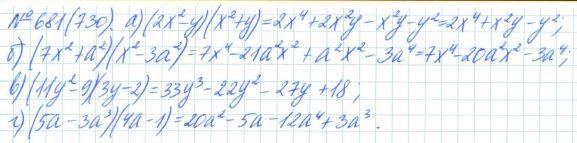 № 681(730). а) (2x²-y)(x²+y)=2x⁴+2x²y-x²y-y²=2x⁴+x²y-y²;
б) (7x²+a²)(x²-3a²)=7x⁴-21a²x²+a²x²-3a⁴=7x⁴-20a²x²-3a⁴;
в) (11y²-9)(3y-2)=33y³-22y²-27y+18;
г) (5a-3a³)(4a-1)=20a²-5a-12a⁴+3a³.